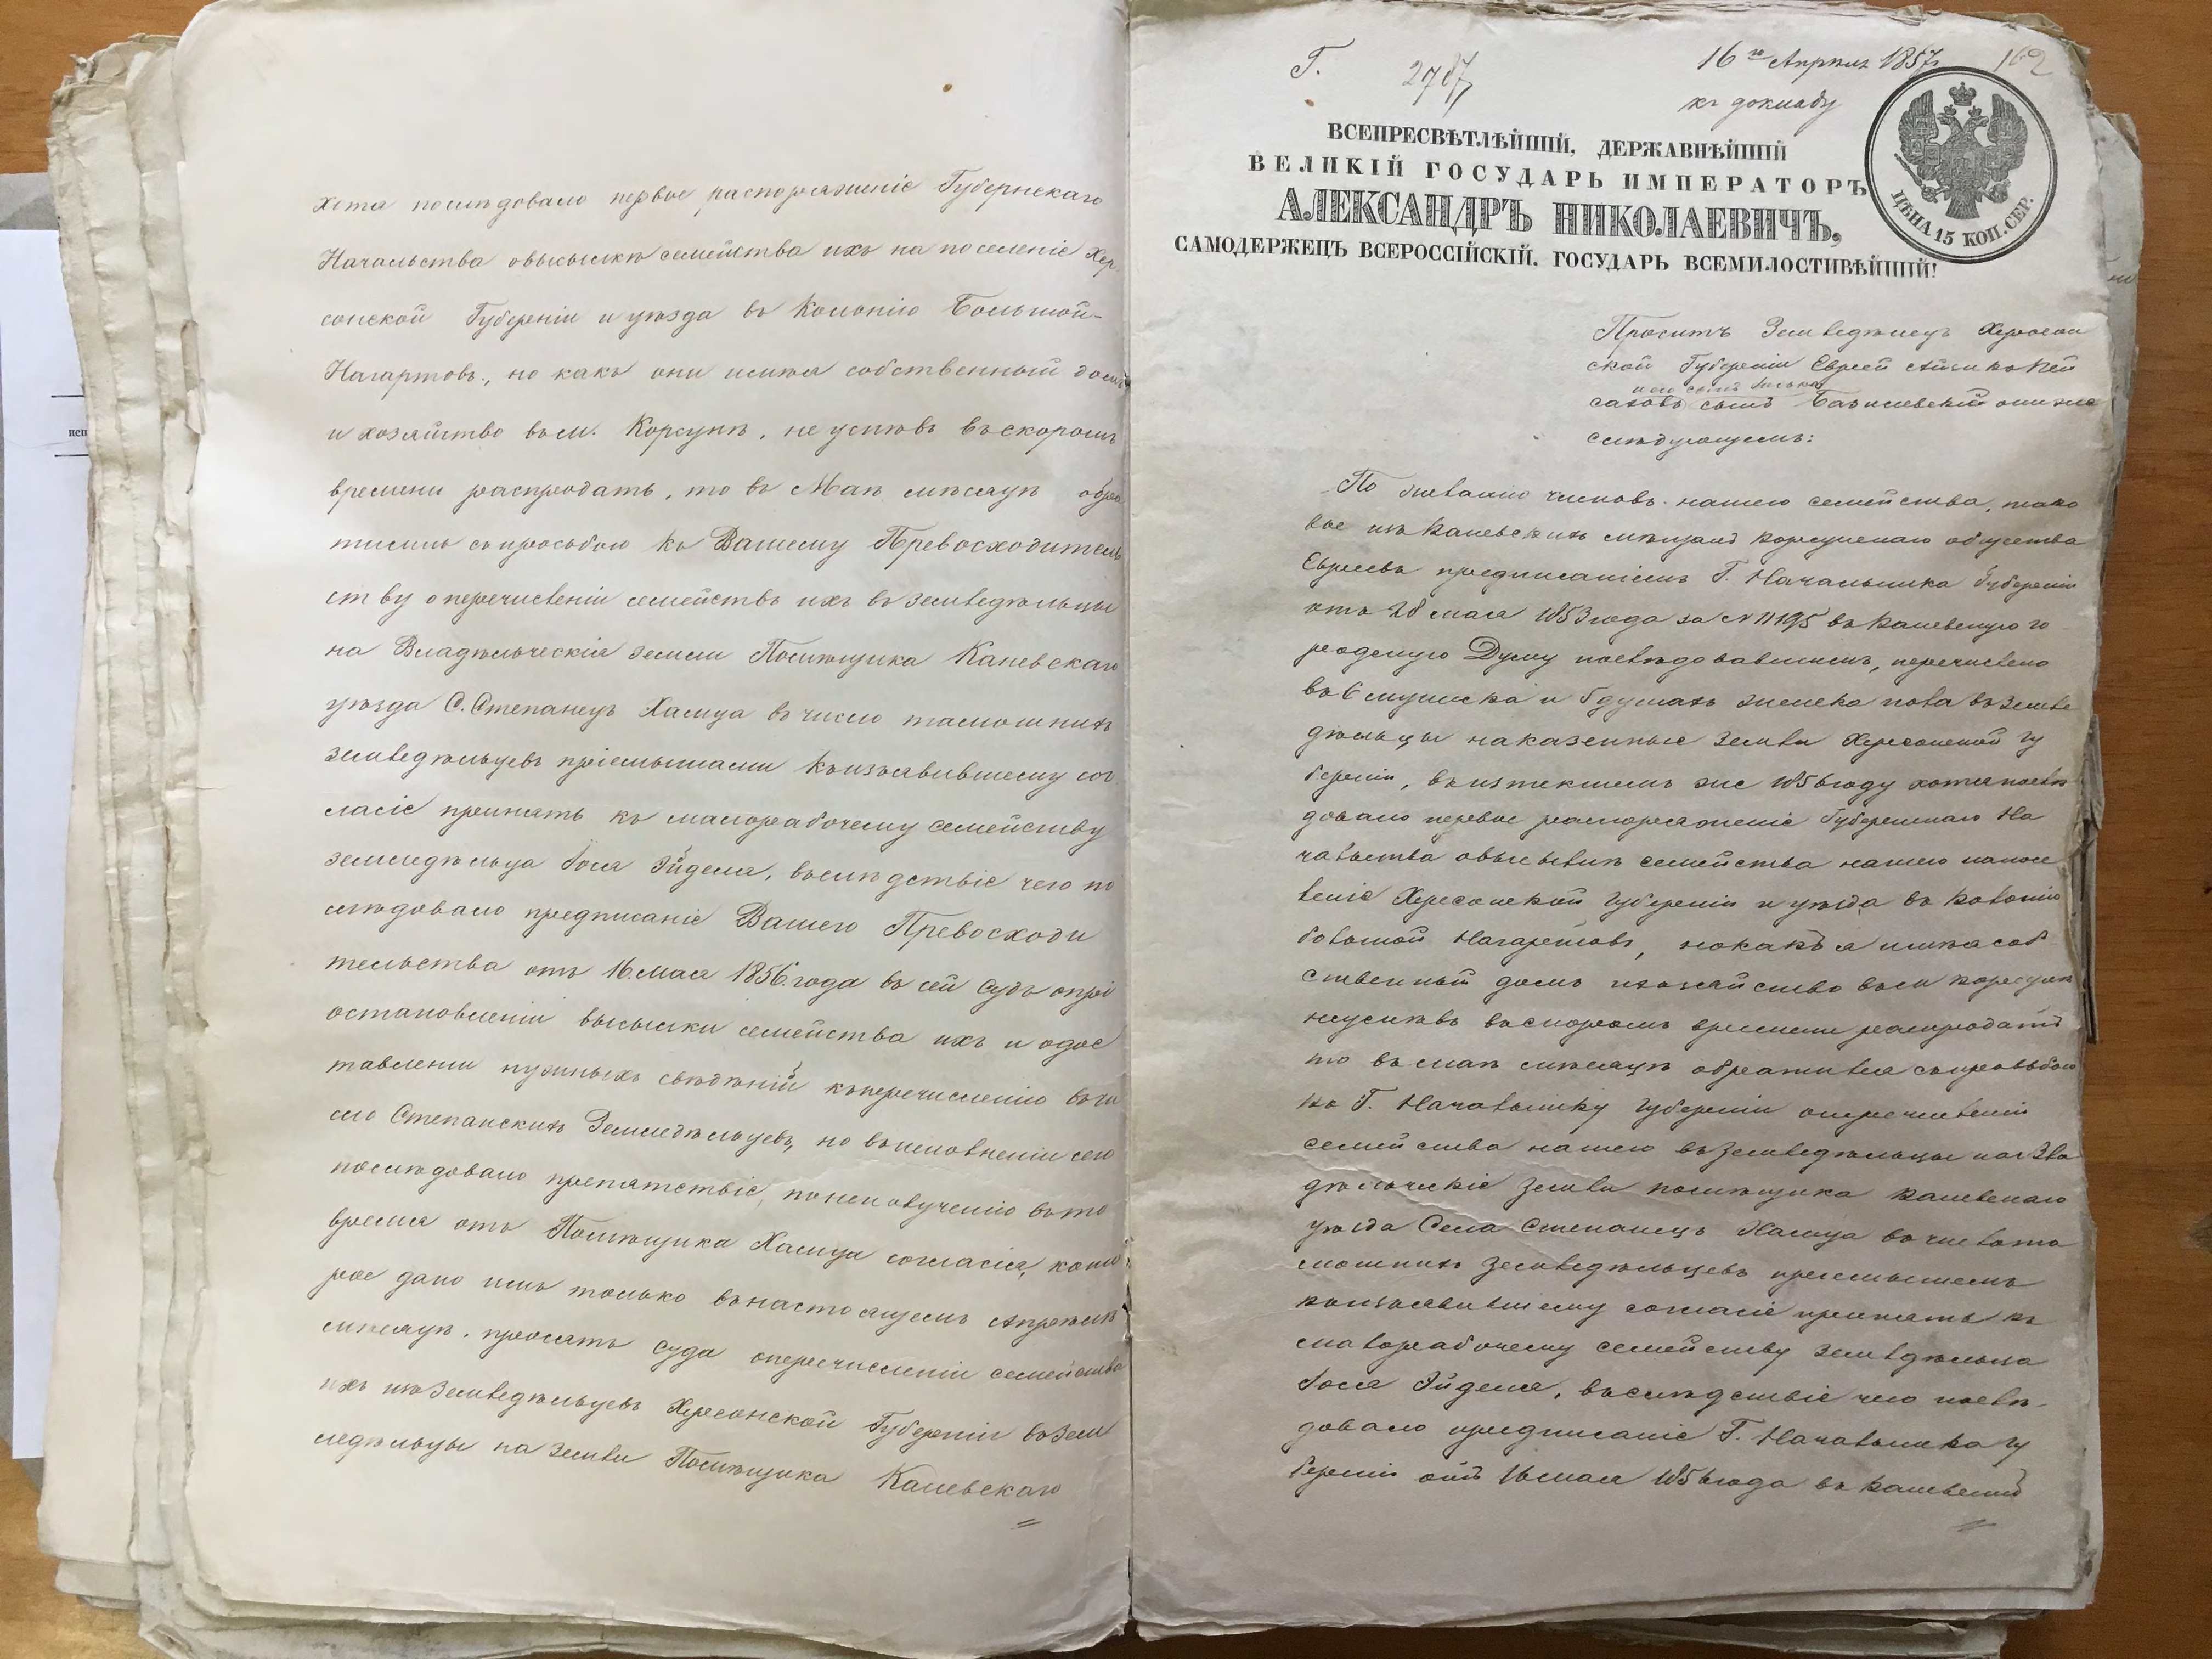 хотя последовало первое распоряженіе Губернскаго
Начальства овысылкѣ семейства ихъ на поселеніе Хер
сонской Губерніи и уѣзда въ Колонію Большой-
Нагартовъ, но какъ они имѣя собственный домъ
и хозяйство въ м. Корсунѣ, не успѣвъ вскоромъ
времени распродать, то въ Маѣ мѣсяцѣ обра
тились съ просьбою къ Вашему Превосходитель
ству о перечисленіи семействъ ихъ въ земледѣльцы
на Владѣльческія земли Помѣщика Каневскаго
уѣзда С. Степанецъ Хамца въ число тамошнихъ
земледѣльцевъ пріемышами къ изъявившему сог
ласіе принять къ малорабочему семейству
земледѣльца Іося Эйделя, вслѣдствіе чего по
слѣдовало предписаніе Вашего Превосходи
тельства отъ 16. мая 1856. года въ сей Судъ опрі
остановленіи высылки семейства ихъ и одос
тавленіи нужныхъ свѣдѣній къ перечисленію въчи
сло Степанскихъ Земледѣльцевъ, но въ исполненіи сего
послѣдовало препятствіе, по неполученію въ то
время отъ Помѣщика Хамца согласія, кото
рое дано имъ только въ настоящемъ Апрѣлѣ
мѣсяцѣ. просятъ Суда оперечисленіи семейства
ихъ изъ Земледѣльцевъ Херсонской Губерніи въ Зем
ледѣльцы на земли Помѣщика Каневскаго
Г. 2787 16го Апрѣля 1857г. 162
къ докладу
ВСЕПРЕСВѢТЛѢЙШІЙ, ДЕРЖАВНѢЙШІЙ
ВЕЛИКІЙ ГОСУДАРЬ ИМПЕРАТОРЪ
АЛЕКСАНДРЪ НИКОЛАЕВИЧЪ,
САМОДЕРЖЕЦЪ ВСЕРОССІЙСКІЙ, ГОСУДАРЬ ВСЕМИЛОСТИВѢЙШІЙ!
ЦѢНА 15 КОП. СЕР.
Проситъ Земледѣлецъ Херсон
ской Губерніи Еврей Айзикъ Пей
саховъ сынъ Базилевскій ониже
слѣдующемъ:
По желанію членовъ нашего семейства, тако
вое изъ Каневскихъ мѣщанъ Корсунскаго общества
Евреевъ предписаніемъ Г. Начальника Губерніи
отъ 28 мая 1853 года за №11195 въ Каневскую го
родскую Думу послѣдовавшимъ, перечислено
въ 6 мужеска и 8 душахъ женска пола въ земле
дѣльцы наказенные земли Херсонской гу
берніи, въ истекшемъ же 1856 году хотя послѣ
довало первое распоряженіе Губернскаго На
чальства овысылкѣ семейства нашего напосе
леніе Херсонской губерніи и уѣзда въ колонію
большой Нагартовъ, но какъ я имѣя соб
ственный домъ и хозяйство въ м Корсунѣ
неуспѣвъ вскоромъ времени распродать
то въ маѣ мѣсяцѣ обратился съ просьбою
къ Г. Начальнику губерніи оперечисленіи
семейства нашего въ земледѣльцы на Вла
дѣльческіе земли помѣщика Каневскаго
уѣзда Села Степанецъ Хамца въ число та
мошнихъ земледѣльцевъ пріемышемъ
къ изъявившему согласіе принять къ
малорабочему семейству земледѣльца
Іося Эйделя, вслѣдствіе чего послѣ-
довало предписаніе Г. Начальника гу
берніи отъ 16 мая 1856 года въ Каневскій